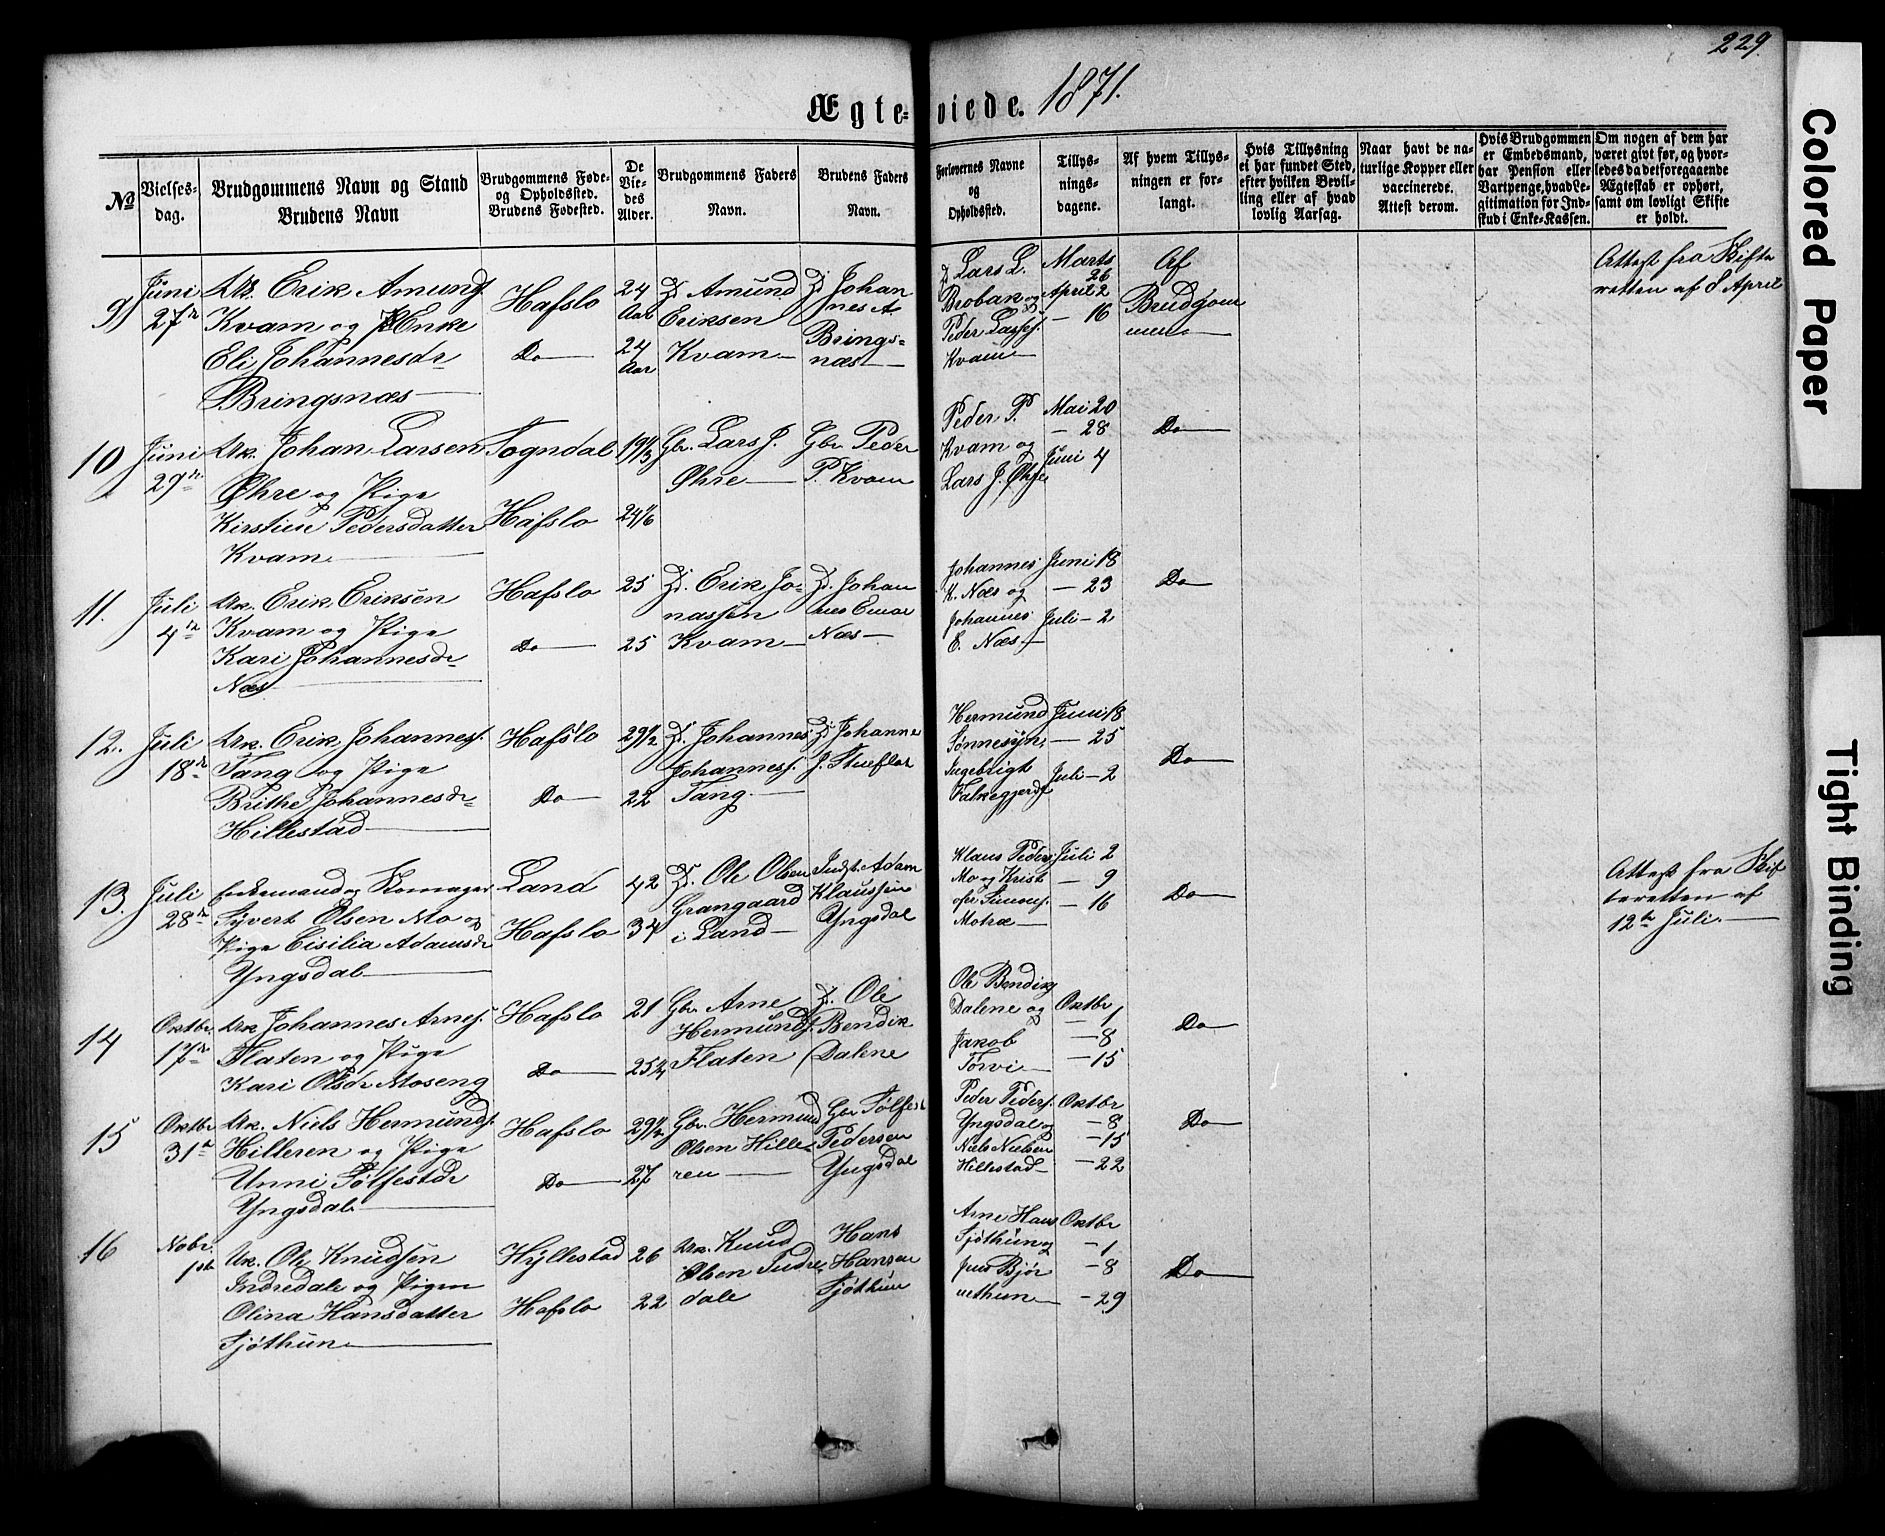 229.
Ægteviede. 1871.
No
Vielsesdag.
Brudgommens Navn og Stand
Brudens Navn
Brudgommens Føde- og Opholdssted.
Brudens Fødested.
De Viedes Alder.
Brudgommens Faders Navn.
Brudens Faders Navn.
Forlovernes Navne og Opholdssted.
Tillysningsdagene.
Af hvem Tillysningen er forlangt.
Hvis Tillysning ei har fundet Sted, efter hvilken Bevilling eller af hvad lovlig Aarsag.
Naar havt de naturlige Kopper eller vaccinerede. Attest derom.
Hvis Brudgommen er Embedsmand, har Pension eller Vartpenge, hvad Legitimation for Indskud i Enke-Kassen.
Om nogen af dem har været givt før, og hvorledes da det foregaaende Ægteskab er ophørt, samt om lovligt Skifte er holdt.
9) Juni 27de
Uk. Erik Amunds.
Kvam og Enke
Eli Johannesdr
Bringsnæs
Hafslo
Do
24 Aar
24 Aar
Gd. Amund
Eriksen
Kvam
Gd. Johan
nes A
Brings=
næs
Lars L.
Broban og
Peder Lasses.
Kvam
Marts 26
April 2
— 16
Af
Brudgom
men
Attest fra Skifte
retten af 8 April
10 Juni 29de
Uk. Johan Larsen
Øhre og Pige
Kirstine Pedersdatter
Kvam
Sogndal
Hafslo
19 1/3
24 1/6
Gbr. Lars J.
Øhre
Gbr. Peder
P. Kvam
Peder P.
Kvam og
Lars J. Øhre
Mai 20
— 28
Juni 4
Do
11. Juli 4de
Uk. Erik Eriksen
Kvam og Pige
Kari Johannesdr
Næs
Hafslo
Do
25
25
Gd. Erik Jo-
nassen
Kvam
Gd. Johan
nes Einar
Næs
Johannes
K. Næs og
Johannes
E. Næs
Juni 18
— 23
Juli — 2
Do
12. Juli 18de
Uk. Erik Johannes.
Tang og Pige
Brithe Johannesdr
Hillestad
Hafslo
Do
29 1/2
22
Gd. Johannes
Johannes.
Tang.
Gd. Johanne
J. Stueflot
Hermund
Sønnesyn,
Ingebrigt
Falkegjerd
Juni 18
— 25
Juli — 2
Do
13. Juli 28de
Enkemand og Skomager
Syvert Olsen Mo og
Pige Cisilia Adamsdr
Yngsdal
Land
Hafslo
42
34
Gd. Ole Olsen
Grangaard
i Land
Indst. Adam
Klaussen
Yngsdal
Klaus Peders.
Mo og Krist
ofer Simons.
Molræ
Juli 2
— 9
— 16
Do
Attest fra Skif
teretten af
12te Juli.
14 Oktbr. 17de
Uk. Johannes Arnes.
Flaten og Pige
Kari Olsdr Moseng
Hafslo
Do
21
25 1/4
Gbr. Arne
Hermunds.
Flaten
Gd. Ole
Bendik
Dalene
Ole Bendiks
Dalene og
Jakob
Tørvi
Oktbr
— 1
— 8
— 15
Do
15 Oktbr 31te
Uk. Niels Hermunds.
Hilleren og Pige
Unni Tølfestdr
Yngsdal
Hafslo
Do
29 1/2
27
Gbr. Hermund
Olsen Hille-
ren
Gbr Tølfest
Pedersen
Yngsdal
Peder Peders.
Yngsdal og
Niels Nielsen
Hillestad
Oktbr
— 8
— 15
— 22
Do
16 Nobr. 1ste
Uk. Ole Knudsen
Indredale og Pigen
Olina Hansdatter
Sjøthun
Hyllestad
Hafslo
26
22
Uk. Knud
Olsen Indre-
dale
Hans
Hansen
Sjøthun
Arne Hans
Sjøthun og
Jens Bjør
nethun
Oktbr
— 1
— 8
— 29
Do
Colored Paper
Tight Binding